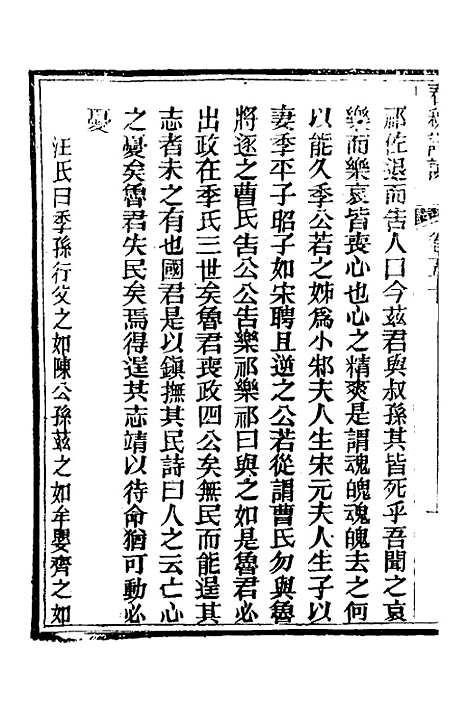 祁佐退而告人曰今茲君與叔孫其皆死乎吾聞之哀
樂而樂哀皆喪心也心之精爽是謂魂魄魂魄去之何
以能久季公若之姊爲小邾夫人生宋元夫人生子以
妻季平子昭子如宋聘且逆之公若從謂曹氏勿與魯
將逐之曹氏告公公告樂祁樂祁曰與之如是魯君必
出政在季氏三世矣魯君喪政四公矣無民而能逞其
志者未之有也國君是以鎭撫其民詩曰人之云亡心
之憂矣魯君失民矣焉得逞其志靖以待命猶可動必
憂
汪氏曰季孫行父之如陳公孫茲之如牟嬰齊之如